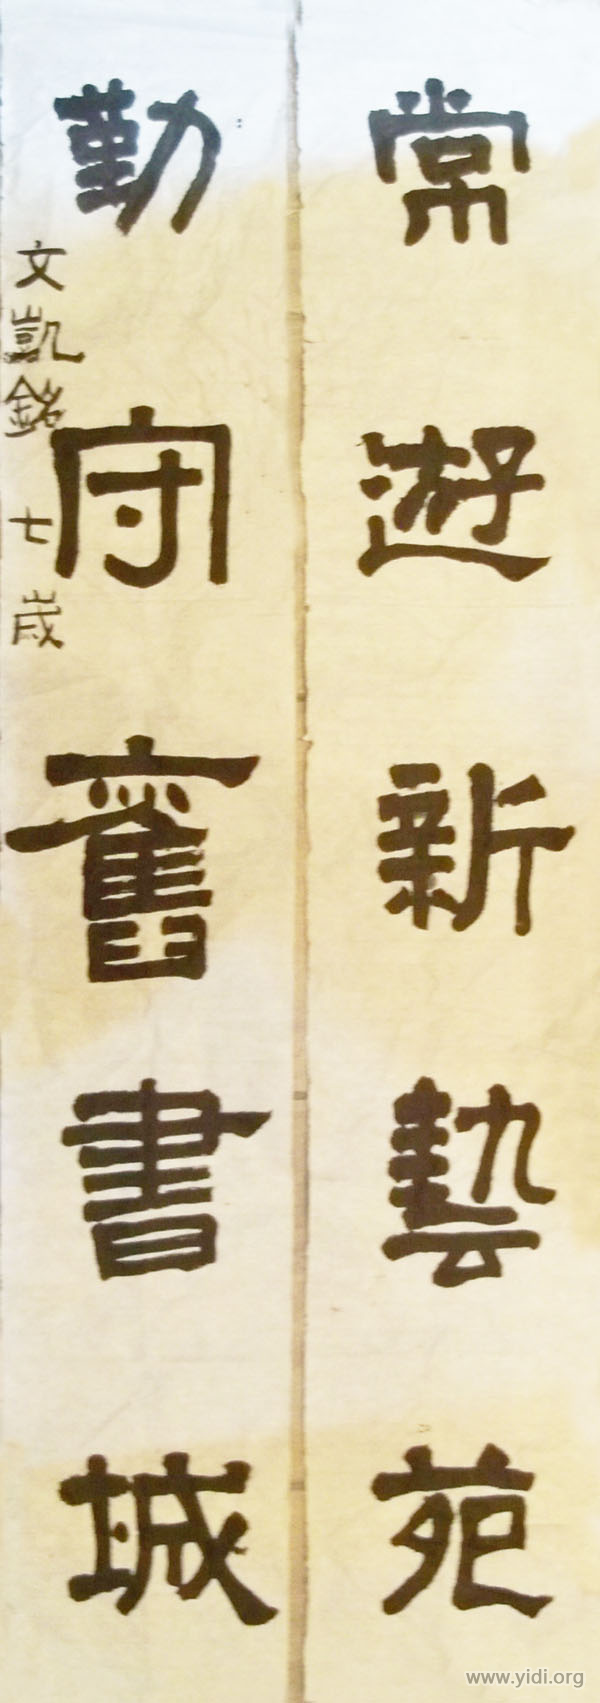 常遊新藝苑
勤守舊書城
文凱銘 七歲
www.yidi.org